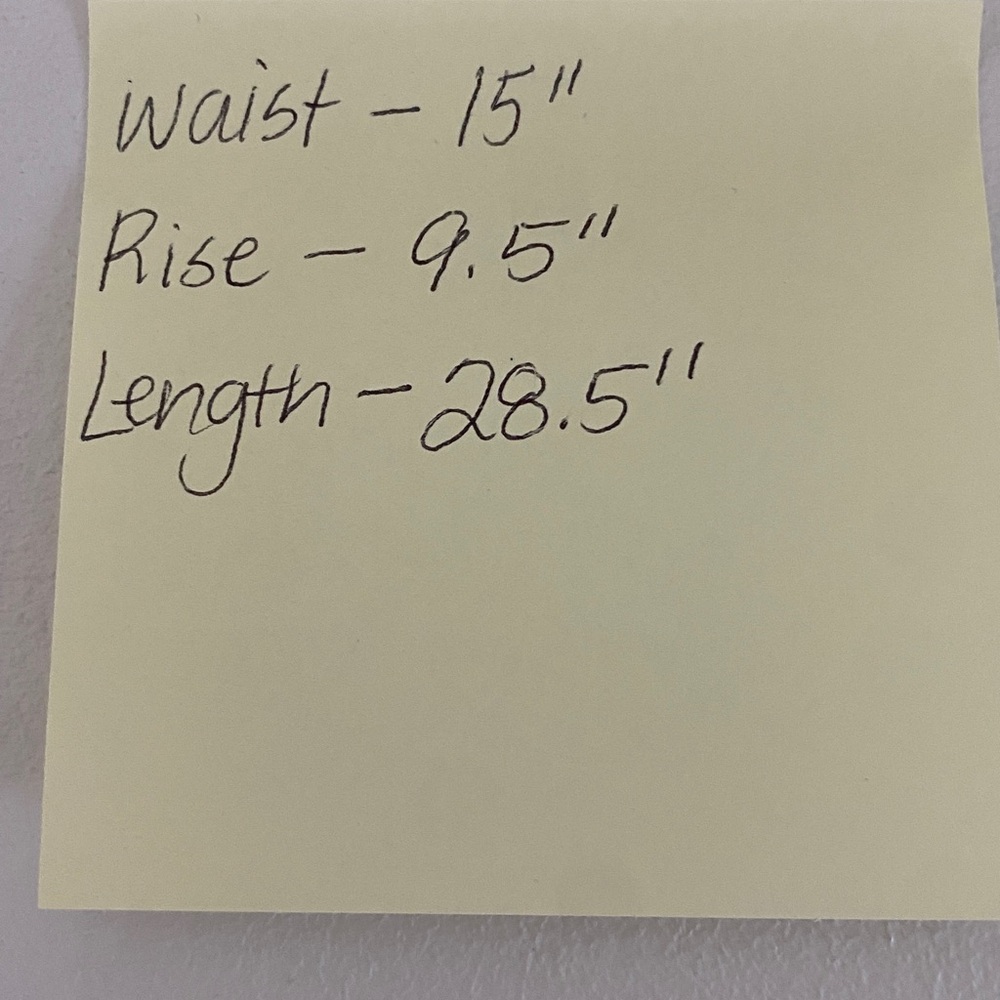 Waist - 15"
Rise - 9.5"
Length - 28.5"